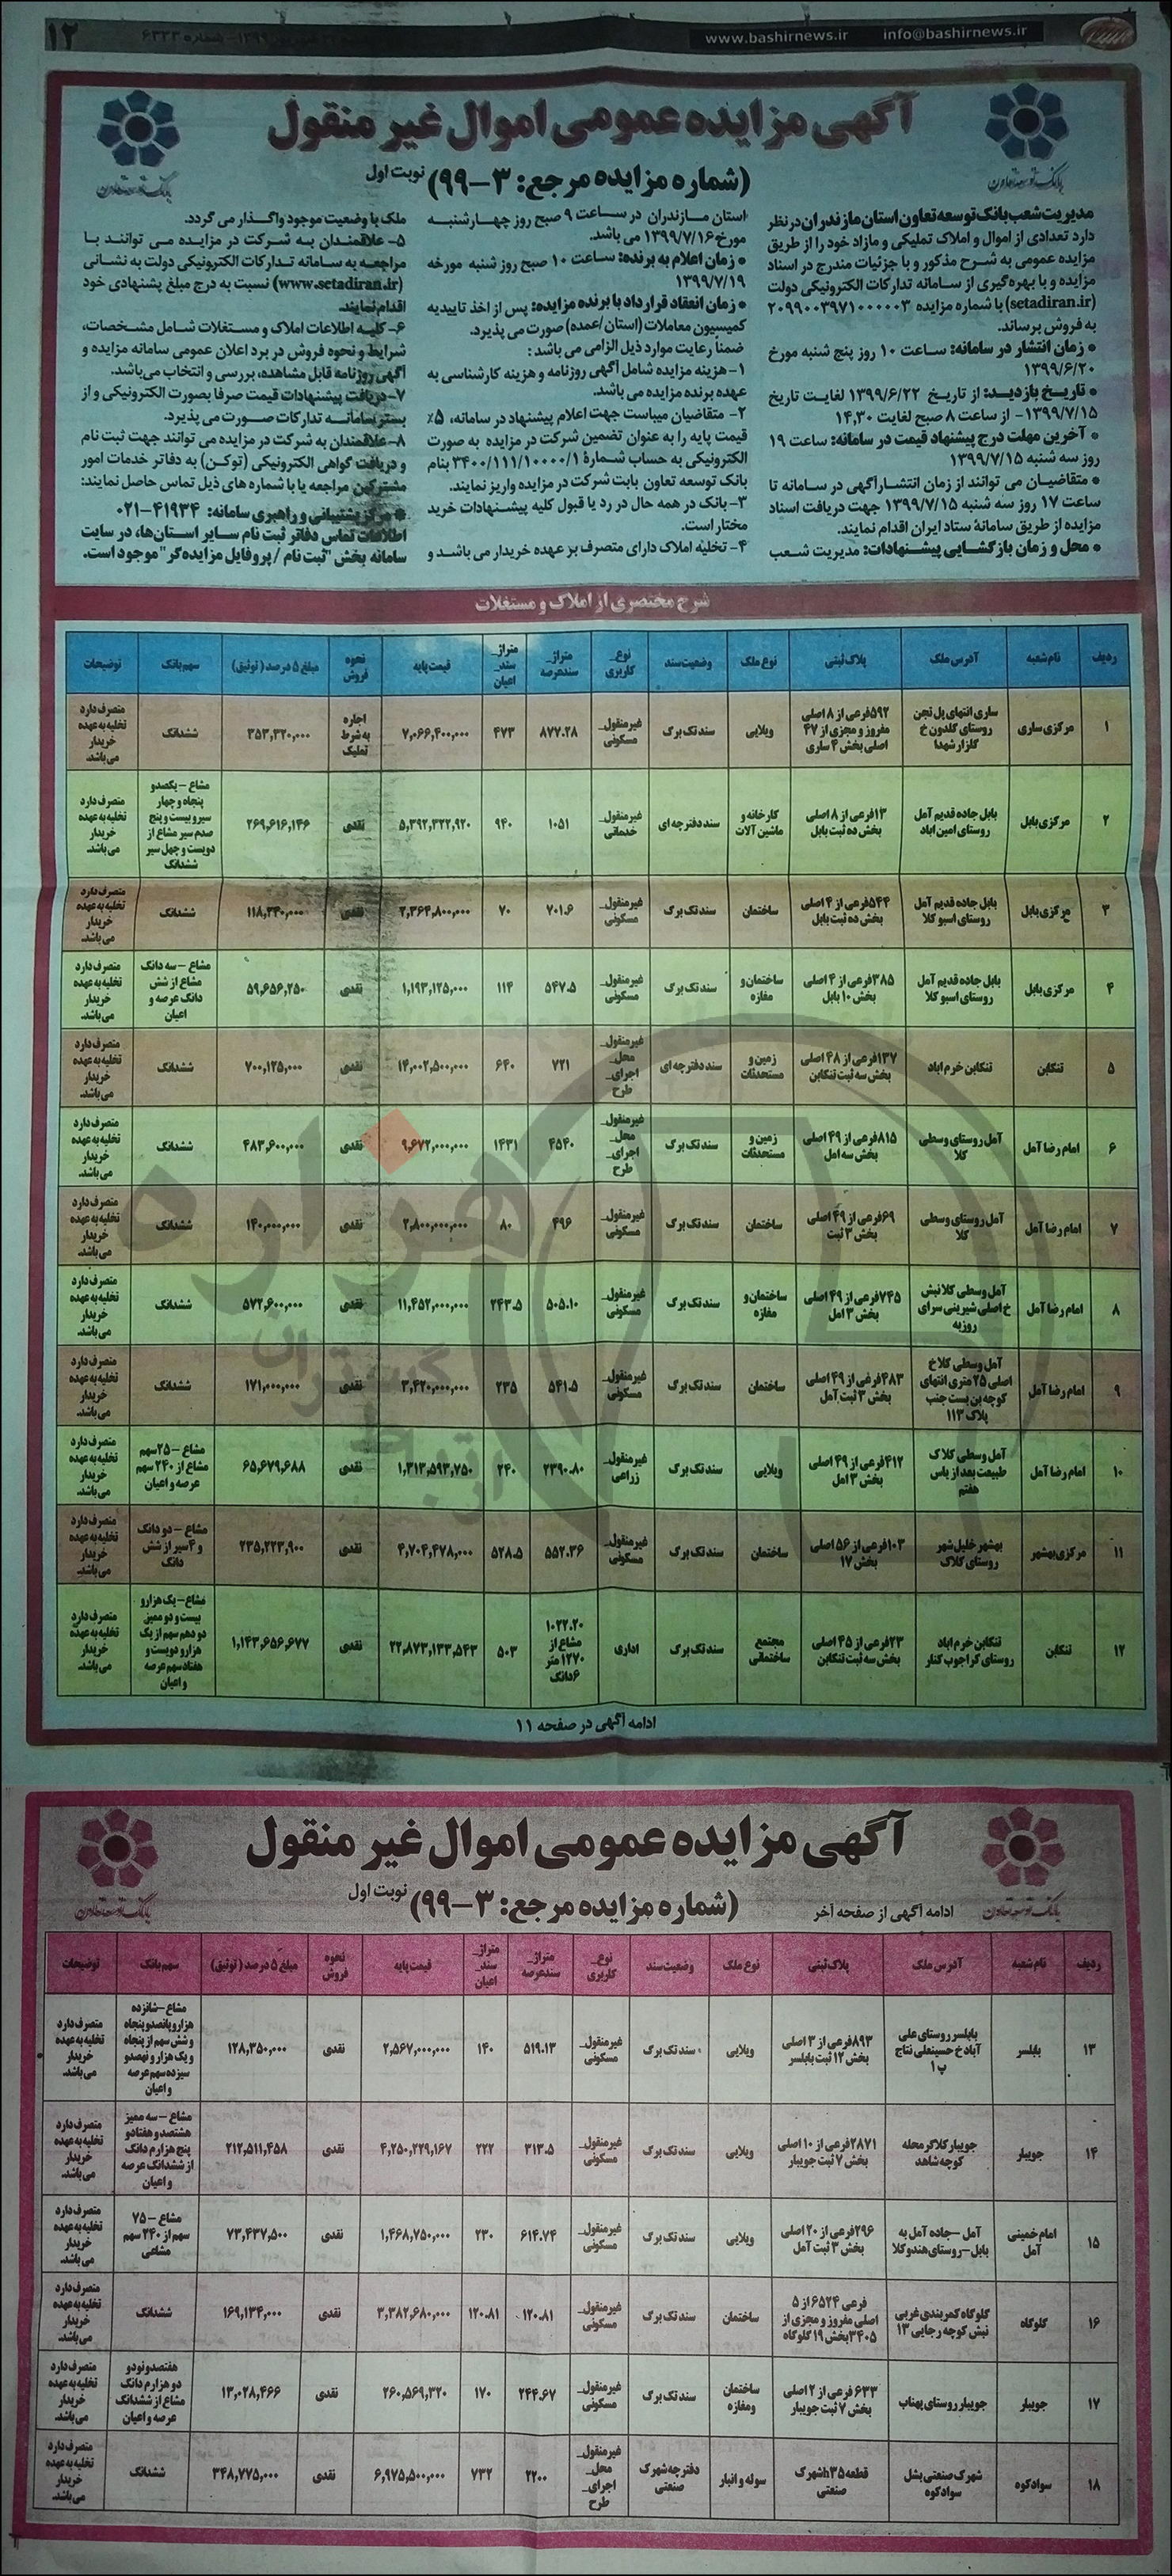 ۱۲
www.bashirnews.ir info@bashirnews.ir
آگهی مزایده عمومی اموال غیر منقول
(شماره مزایده مرجع: ۳-۹۹) نوبت اول
بانک توسعه تعاون
مدیریت شعب بانک توسعه تعاون استان مازندران در نظر
دارد تعدادی از اموال و املاک تملیکی و مازاد خود را از طریق
مزایده عمومی به شرح مذکور و با جزئیات مندرج در اسناد
مزایده و با بهره‌گیری از سامانه تدارکات الکترونیکی دولت
(setadiran.ir) با شماره مزایده ۲۰۹۹۰۰۳۹۷۱۰۰۰۰۰۳
به فروش برساند.
* زمان انتشار در سامانه: ساعت ۱۰ روز پنج شنبه مورخ
۱۳۹۹/۶/۲۰
* تاریخ بازدید: از تاریخ ۱۳۹۹/۶/۲۲ لغایت تاریخ
۱۳۹۹/۷/۱۵- از ساعت ۸ صبح لغایت ۱۴,۳۰
* آخرین مهلت درج پیشنهاد قیمت در سامانه: ساعت ۱۹
روز سه شنبه ۱۳۹۹/۷/۱۵
* متقاضیان می توانند از زمان انتشار آگهی در سامانه تا
ساعت ۱۷ روز سه شنبه ۱۳۹۹/۷/۱۵ جهت دریافت اسناد
مزایده از طریق سامانۀ ستاد ایران اقدام نمایند.
* محل و زمان بازگشایی پیشنهادات: مدیریت شعب
استان مازندران در ساعت ۹ صبح روز چهارشنبه
مورخ ۱۳۹۹/۷/۱۶ می باشد.
* زمان اعلام به برنده: ساعت ۱۰ صبح روز شنبه مورخه
۱۳۹۹/۷/۱۹
* زمان انعقاد قرارداد با برنده مزایده: پس از اخذ تاییدیه
کمیسیون معاملات (استان/عمده) صورت می پذیرد.
ضمنا رعایت موارد ذیل الزامی می باشد :
۱- هزینه مزایده شامل آگهی روزنامه و هزینه کارشناسی به
عهده برنده مزایده می باشد.
۲- متقاضیان میبایست جهت اعلام پیشنهاد در سامانه، ۵٪
قیمت پایه را به عنوان تضمین شرکت در مزایده به صورت
الکترونیکی به حساب شمارۀ ۳۴۰۰/۱۱۱/۱۰۰۰۰/۱ بنام
بانک توسعه تعاون بابت شرکت در مزایده واریز نمایند.
۳- بانک در همه حال در رد یا قبول کلیه پیشنهادات خرید
مختار است.
۴- تخلیه املاک دارای متصرف بر عهده خریدار می باشد و
ملک با وضعیت موجود واگذار می گردد.
۵- علاقمندان به شرکت در مزایده می توانند با
مراجعه به سامانه تدارکات الکترونیکی دولت به نشانی
(www.setadiran.ir) نسبت به درج مبلغ پشنهادی خود
اقدام نمایند.
۶- کلیه اطلاعات املاک و مستغلات شامل مشخصات،
شرایط و نحوه فروش در برد اعلان عمومی سامانه مزایده و
آگهی روزنامه قابل مشاهده، بررسی و انتخاب می‌باشد.
۷- دریافت پیشنهادات قیمت صرفا بصورت الکترونیکی و از
بستر سامانه تدارکات صورت می پذیرد.
۸- علاقمندان به شرکت در مزایده می توانند جهت ثبت نام
و دریافت گواهی الکترونیکی (توکن) به دفاتر خدمات امور
مشترکین مراجعه یا با شماره های ذیل تماس حاصل نمایند:
* مرکز پشتیبانی و راهبری سامانه: ۴۱۹۳۴-۰۲۱
اطلاعات تماس دفاتر ثبت نام سایر استان‌ها، در سایت
سامانه بخش "ثبت نام / پروفایل مزایده‌گر" موجود است.
شرح مختصری از املاک و مستغلات
ردیف نام شعبه آدرس ملک پلاک ثبتی نوع ملک وضعیت سند نوع_کاربری متراژ_سند عرصه متراژ_سند_اعیان قیمت پایه نحوه فروش مبلغ ۵ درصد (توثیق) سهم بانک توضیحات
۱ مرکزی ساری ساری انتهای پل تجن روستای گلدون خ گلزار شهدا ۵۹۲فرعی از ۸ اصلی مفروز و مجزی از ۴۷ اصلی بخش ۴ ساری ویلایی سند تک برگ غیر منقول_مسکونی ۸۷۷.۲۸ ۴۷۳ ۷,۰۶۶,۴۰۰,۰۰۰ اجاره به شرط تملیک ۳۵۳,۳۲۰,۰۰۰ ششدانگ متصرف دارد تخلیه به عهده خریدار می باشد.
۲ مرکزی بابل بابل جاده قدیم آمل روستای امین اباد ۱۳فرعی از ۸ اصلی بخش ده ثبت بابل کارخانه و ماشین آلات سند دفترچه ای غیر منقول_خدماتی ۱۰۵۱ ۹۴۰ ۵,۳۹۲,۳۲۲,۹۲۰ نقدی ۲۶۹,۶۱۶,۱۴۶ مشاع - یکصدو پنجاه و چهار سیر و بیست و پنج صدم سیر مشاع از دویست و چهل سیر ششدانگ متصرف دارد تخلیه به عهده خریدار می باشد.
۳ مرکزی بابل بابل جاده قدیم آمل روستای اسبو کلا ۵۴۴فرعی از ۴ اصلی بخش ده ثبت بابل ساختمان سند تک برگ غیر منقول_مسکونی ۷۰۱.۶ ۷۰ ۲,۳۶۴,۸۰۰,۰۰۰ نقدی ۱۱۸,۲۴۰,۰۰۰ ششدانگ متصرف دارد تخلیه به عهده خریدار می باشد.
۴ مرکزی بابل بابل جاده قدیم آمل روستای اسبو کلا ۳۸۵فرعی از ۴ اصلی بخش ۱۰ بابل ساختمان و مغازه سند تک برگ غیر منقول_مسکونی ۵۴۷.۵ ۱۱۴ ۱,۱۹۳,۱۲۵,۰۰۰ نقدی ۵۹,۶۵۶,۲۵۰ مشاع - سه دانگ مشاع از شش دانگ عرصه و اعیان متصرف دارد تخلیه به عهده خریدار می باشد.
۵ تنکابن تنکابن خرم اباد ۱۳۷فرعی از ۴۸ اصلی بخش سه ثبت تنکابن زمین و مستحدثات سند دفترچه ای غیر منقول_محل_اجرای_طرح ۷۲۱ ۶۴۰ ۱۴,۰۰۲,۵۰۰,۰۰۰ نقدی ۷۰۰,۱۲۵,۰۰۰ ششدانگ متصرف دارد تخلیه به عهده خریدار می باشد.
۶ امام رضا آمل آمل روستای وسطی کلا ۸۱۵فرعی از ۴۹ اصلی بخش سه امل زمین و مستحدثات سند تک برگ غیر منقول_محل_اجرای_طرح ۴۵۴۰ ۱۴۳۱ ۹,۶۷۲,۰۰۰,۰۰۰ نقدی ۴۸۳,۶۰۰,۰۰۰ ششدانگ متصرف دارد تخلیه به عهده خریدار می باشد.
۷ امام رضا آمل آمل روستای وسطی کلا ۶۹فرعی از ۴۹ اصلی بخش ۳ ثبت ساختمان سند تک برگ غیر منقول_مسکونی ۴۹۶ ۸۰ ۲,۸۰۰,۰۰۰,۰۰۰ نقدی ۱۴۰,۰۰۰,۰۰۰ ششدانگ متصرف دارد تخلیه به عهده خریدار می باشد.
۸ امام رضا آمل آمل وسطی کلا نبش خ اصلی شیرینی سرای روزبه ۷۴۵فرعی از ۴۹ اصلی بخش ۳ امل ساختمان و مغازه سند تک برگ غیر منقول_مسکونی ۵۰۵.۱۰ ۲۴۳.۵ ۱۱,۴۵۲,۰۰۰,۰۰۰ نقدی ۵۷۲,۶۰۰,۰۰۰ ششدانگ متصرف دارد تخلیه به عهده خریدار می باشد.
۹ امام رضا آمل آمل وسطی کلا خ اصلی ۲۵ متری انتهای کوچه بن بست جنب پلاک ۱۱۳ ۴۸۳فرعی از ۴۹ اصلی بخش ۳ ثبت آمل ساختمان سند تک برگ غیر منقول_مسکونی ۵۴۱.۵ ۲۳۵ ۳,۴۲۰,۰۰۰,۰۰۰ نقدی ۱۷۱,۰۰۰,۰۰۰ ششدانگ متصرف دارد تخلیه به عهده خریدار می باشد.
۱۰ امام رضا آمل آمل وسطی کلا ک طبیعت بعد از یاس هفتم ۴۱۲فرعی از ۴۹ اصلی بخش ۳ امل ویلایی سند تک برگ غیر منقول_زراعی ۲۳۹۰.۸۰ ۲۴۰ ۱,۳۱۳,۵۹۳,۷۵۰ نقدی ۶۵,۶۷۹,۶۸۸ مشاع - ۲۵سهم مشاع از ۲۴۰ سهم عرصه و اعیان متصرف دارد تخلیه به عهده خریدار می باشد.
۱۱ مرکزی بهشهر بهشهر خلیل شهر روستای کلاک ۱۰۳فرعی از ۵۶ اصلی بخش ۱۷ ساختمان سند تک برگ غیر منقول_مسکونی ۵۵۲.۳۶ ۵۲۸.۵ ۴,۷۰۴,۴۷۸,۰۰۰ نقدی ۲۳۵,۲۲۳,۹۰۰ مشاع - دو دانگ و ۴ سیر از شش دانگ متصرف دارد تخلیه به عهده خریدار می باشد.
۱۲ تنکابن تنکابن خرم اباد روستای کراجوب کنار ۲۳فرعی از ۴۵ اصلی بخش سه ثبت تنکابن مجتمع ساختمانی سند تک برگ اداری ۱۰۲۲.۲۰ مشاع از ۱۲۷۰ متر ۶دانگ ۵۰۳ ۲۲,۸۷۳,۱۳۳,۵۴۳ نقدی ۱,۱۴۳,۶۵۶,۶۷۷ مشاع - یک هزار و بیست و دو ممیز دو دهم سهم از یک هزار و دویست و هفتاد سهم عرصه و اعیان متصرف دارد تخلیه به عهده خریدار می باشد.
ادامه آگهی در صفحه ۱۱
آگهی مزایده عمومی اموال غیر منقول
(شماره مزایده مرجع: ۳-۹۹) نوبت اول
ادامه آگهی از صفحه آخر
بانک توسعه تعاون
ردیف نام شعبه آدرس ملک پلاک ثبتی نوع ملک وضعیت سند نوع_کاربری متراژ_سند عرصه متراژ_سند_اعیان قیمت پایه نحوه فروش مبلغ ۵ درصد (توثیق) سهم بانک توضیحات
۱۳ بابلسر بابلسر روستای علی آباد خ حسینعلی نتاج پ ۱ ۸۹۳فرعی از ۳ اصلی بخش ۱۲ ثبت بابلسر ویلایی سند تک برگ غیر منقول_مسکونی ۵۱۹.۱۳ ۱۴۰ ۲,۵۶۷,۰۰۰,۰۰۰ نقدی ۱۲۸,۳۵۰,۰۰۰ مشاع - شانزده هزار و پانصد و پنجاه و شش سهم از پنجاه و یک هزار و نهصد و سیزده سهم عرصه و اعیان متصرف دارد تخلیه به عهده خریدار می باشد.
۱۴ جویبار جویبار کلاگر محله کوچه شاهد ۲۸۷۱فرعی از ۱۰ اصلی بخش ۷ ثبت جویبار ویلایی سند تک برگ غیر منقول_مسکونی ۳۱۳.۵ ۲۲۲ ۴,۲۵۰,۲۲۹,۱۶۷ نقدی ۲۱۲,۵۱۱,۴۵۸ مشاع - سه ممیز هشتصد و هفتاد و پنج هزارم دانگ از ششدانگ عرصه و اعیان متصرف دارد تخلیه به عهده خریدار می باشد.
۱۵ امام خمینی آمل آمل - جاده آمل به بابل - روستای هندو کلا ۲۹۶فرعی از ۲۰ اصلی بخش ۳ ثبت آمل ویلایی سند تک برگ غیر منقول_مسکونی ۶۱۴.۷۴ ۲۳۰ ۱,۴۶۸,۷۵۰,۰۰۰ نقدی ۷۳,۴۳۷,۵۰۰ مشاع - ۷۵ سهم از ۲۴۰ سهم مشاعی متصرف دارد تخلیه به عهده خریدار می باشد.
۱۶ گلوگاه گلوگاه کمربندی غربی نبش کوچه رجایی ۱۳ فرعی ۶۵۲۴ از ۵ اصلی مفروز و مجزی از ۳۴۰۵ بخش ۱۹ گلوگاه ساختمان سند تک برگ غیر منقول_مسکونی ۱۲۰.۸۱ ۱۲۰.۸۱ ۳,۳۸۲,۶۸۰,۰۰۰ نقدی ۱۶۹,۱۳۴,۰۰۰ ششدانگ متصرف دارد تخلیه به عهده خریدار می باشد.
۱۷ جویبار جویبار روستای بهناب ۶۳۳ فرعی از ۲ اصلی بخش ۷ ثبت جویبار ساختمان ومغازه سند تک برگ غیر منقول_مسکونی ۲۴۴.۶۷ ۱۷۰ ۲۶۰,۵۶۹,۳۲۰ نقدی ۱۳,۰۲۸,۴۶۶ هفتصد و نود و دو هزارم دانگ مشاع از ششدانگ عرصه و اعیان متصرف دارد تخلیه به عهده خریدار می باشد.
۱۸ سوادکوه شهرک صنعتی بشل سوادکوه قطعه h۳۵ شهرک صنعتی سوله و انبار دفترچه شهرک صنعتی غیر منقول_محل_اجرای_طرح ۲۲۰۰ ۷۳۲ ۶,۹۷۵,۵۰۰,۰۰۰ نقدی ۳۴۸,۷۷۵,۰۰۰ ششدانگ متصرف دارد تخلیه به عهده خریدار می باشد.